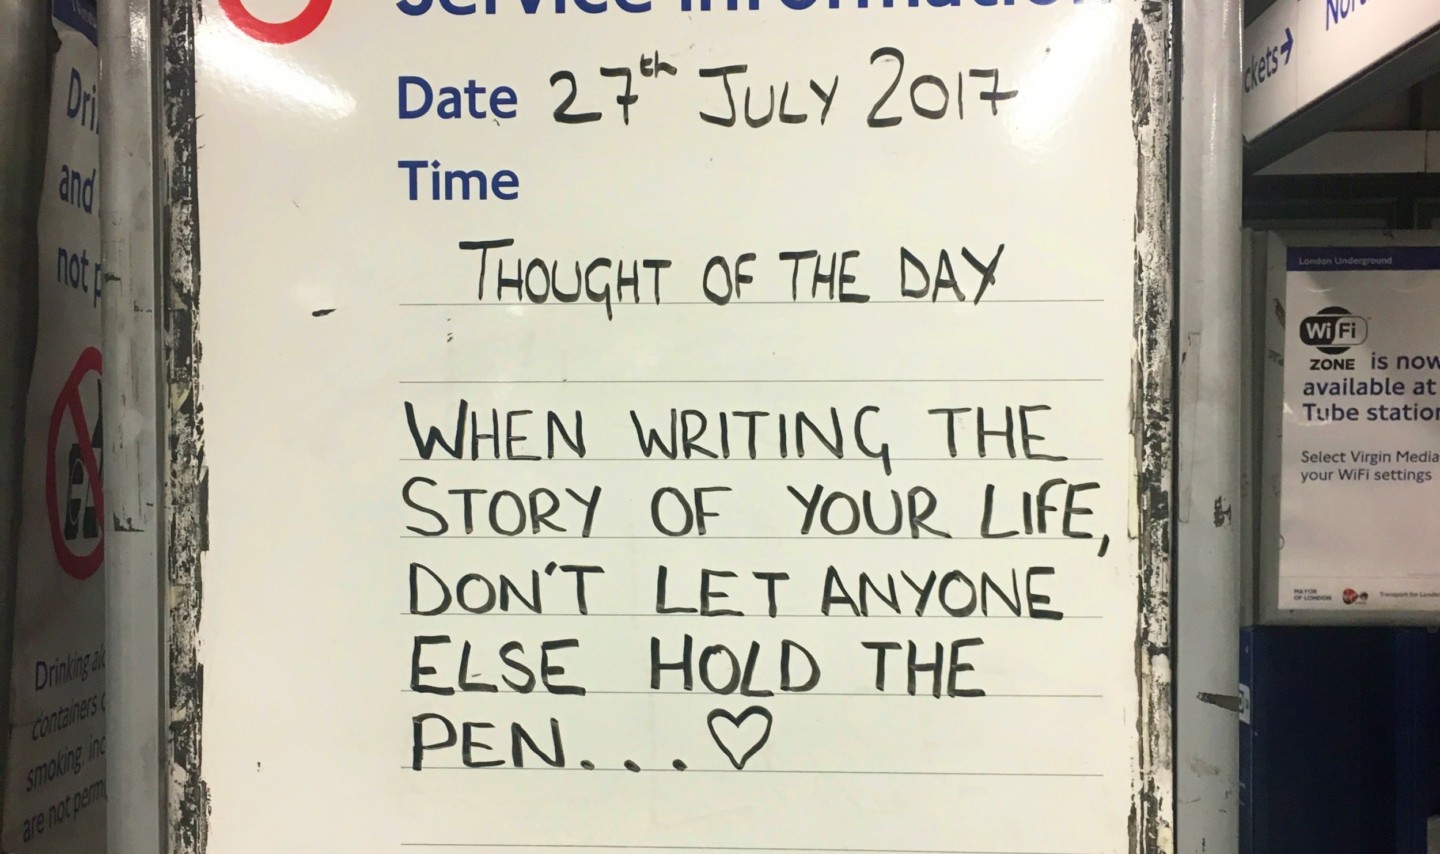 Service Information
Date 27th JULY 2017
Time
THOUGHT OF THE DAY
WHEN WRITING THE
STORY OF YOUR LIFE,
DON'T LET ANYONE
ELSE HOLD THE
PEN...♡
and
not
Drinking
containers
smoking, inc
are not perm
ckets→
London Underground
WiFi
ZONE is now
available at
Tube station
Select Virgin Media
your WiFi settings
MAYOR
OF LONDON
Transport for London